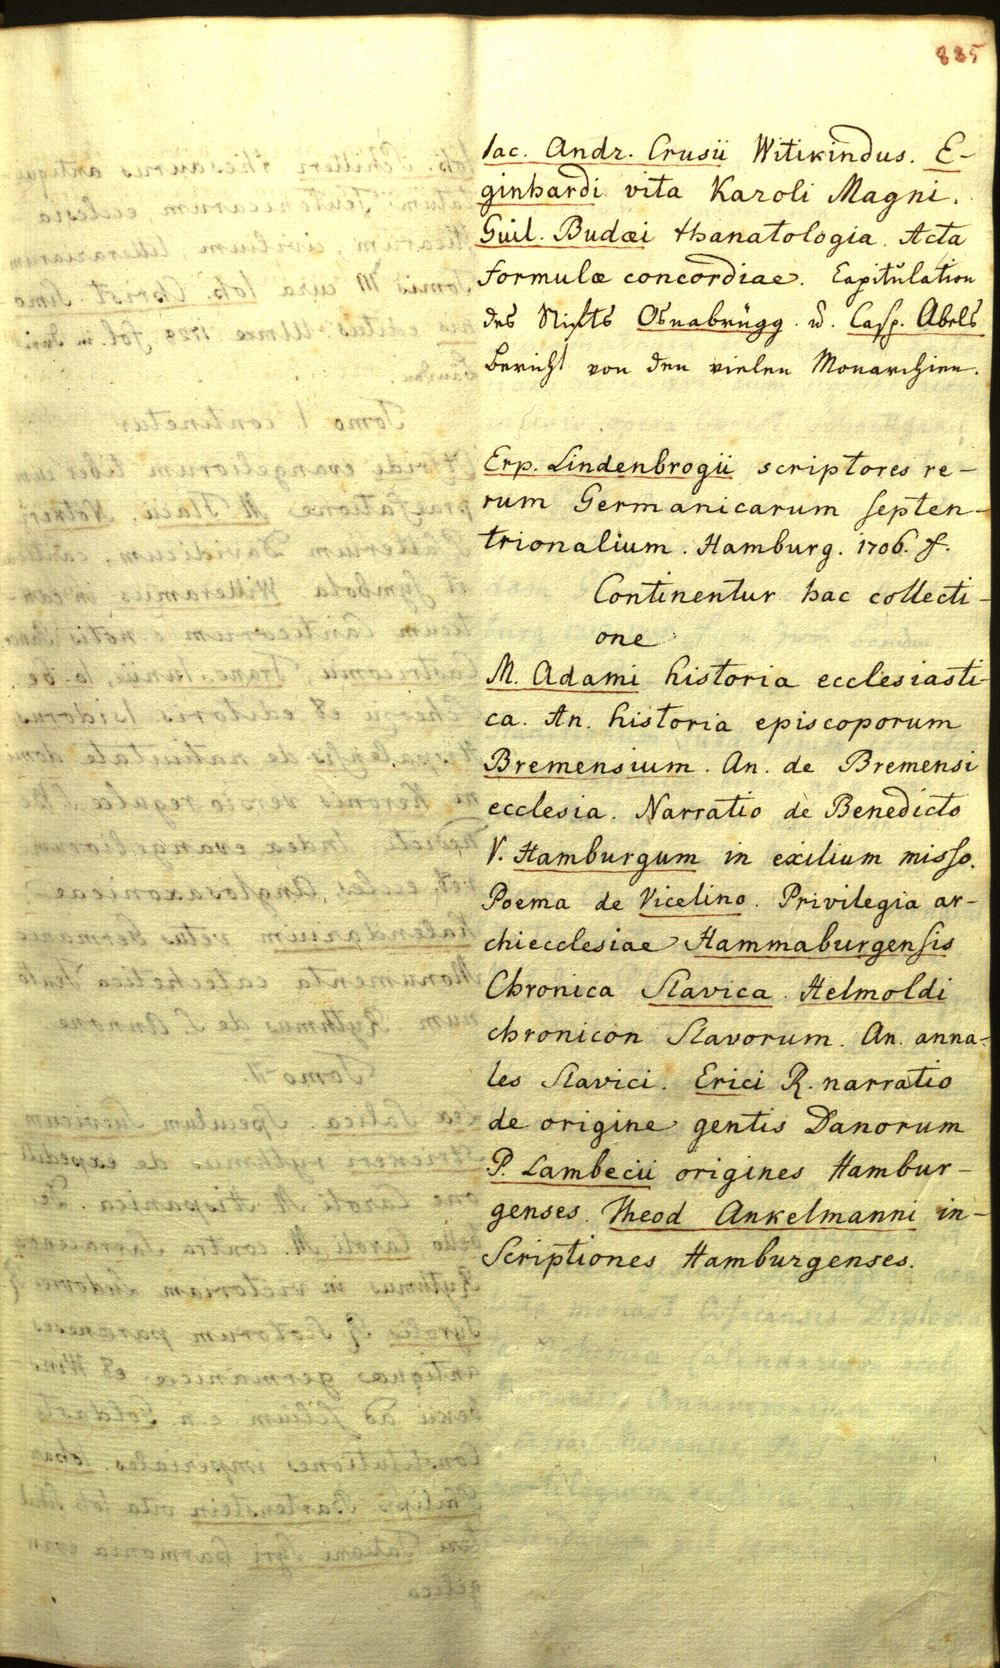 885
Iac. Andr. Crusii Witikindus. E-
ginhardi vita Karoli Magni.
Guil. Budæi thanatologia. Acta
formulæ concordiae. Capitulation
des Stifts Osnabrügg. u. Casp. Abels
Bericht von den vielen Monarchien.
Erp. Lindenbrogii scriptores re-
rum Germanicarum septen-
trionalium. Hamburg. 1706. f.
Continentur hac collecti-
one
M. Adami historia ecclesiasti-
ca. An. historia episcoporum
Bremensium. An. de Bremensi
ecclesia. Narratio de Benedicto
V. Hamburgum in exilium misso.
Poema de Vicelino. Privilegia ar-
chiecclesiae Hammaburgensis
Chronica Slavica. Helmoldi
chronicon Slavorum. An. anna-
les Slavici. Erici R. narratio
de origine gentis Danorum
P. Lambecii origines Hambur-
genses. Theod Ankelmanni in-
scriptiones Hamburgenses.